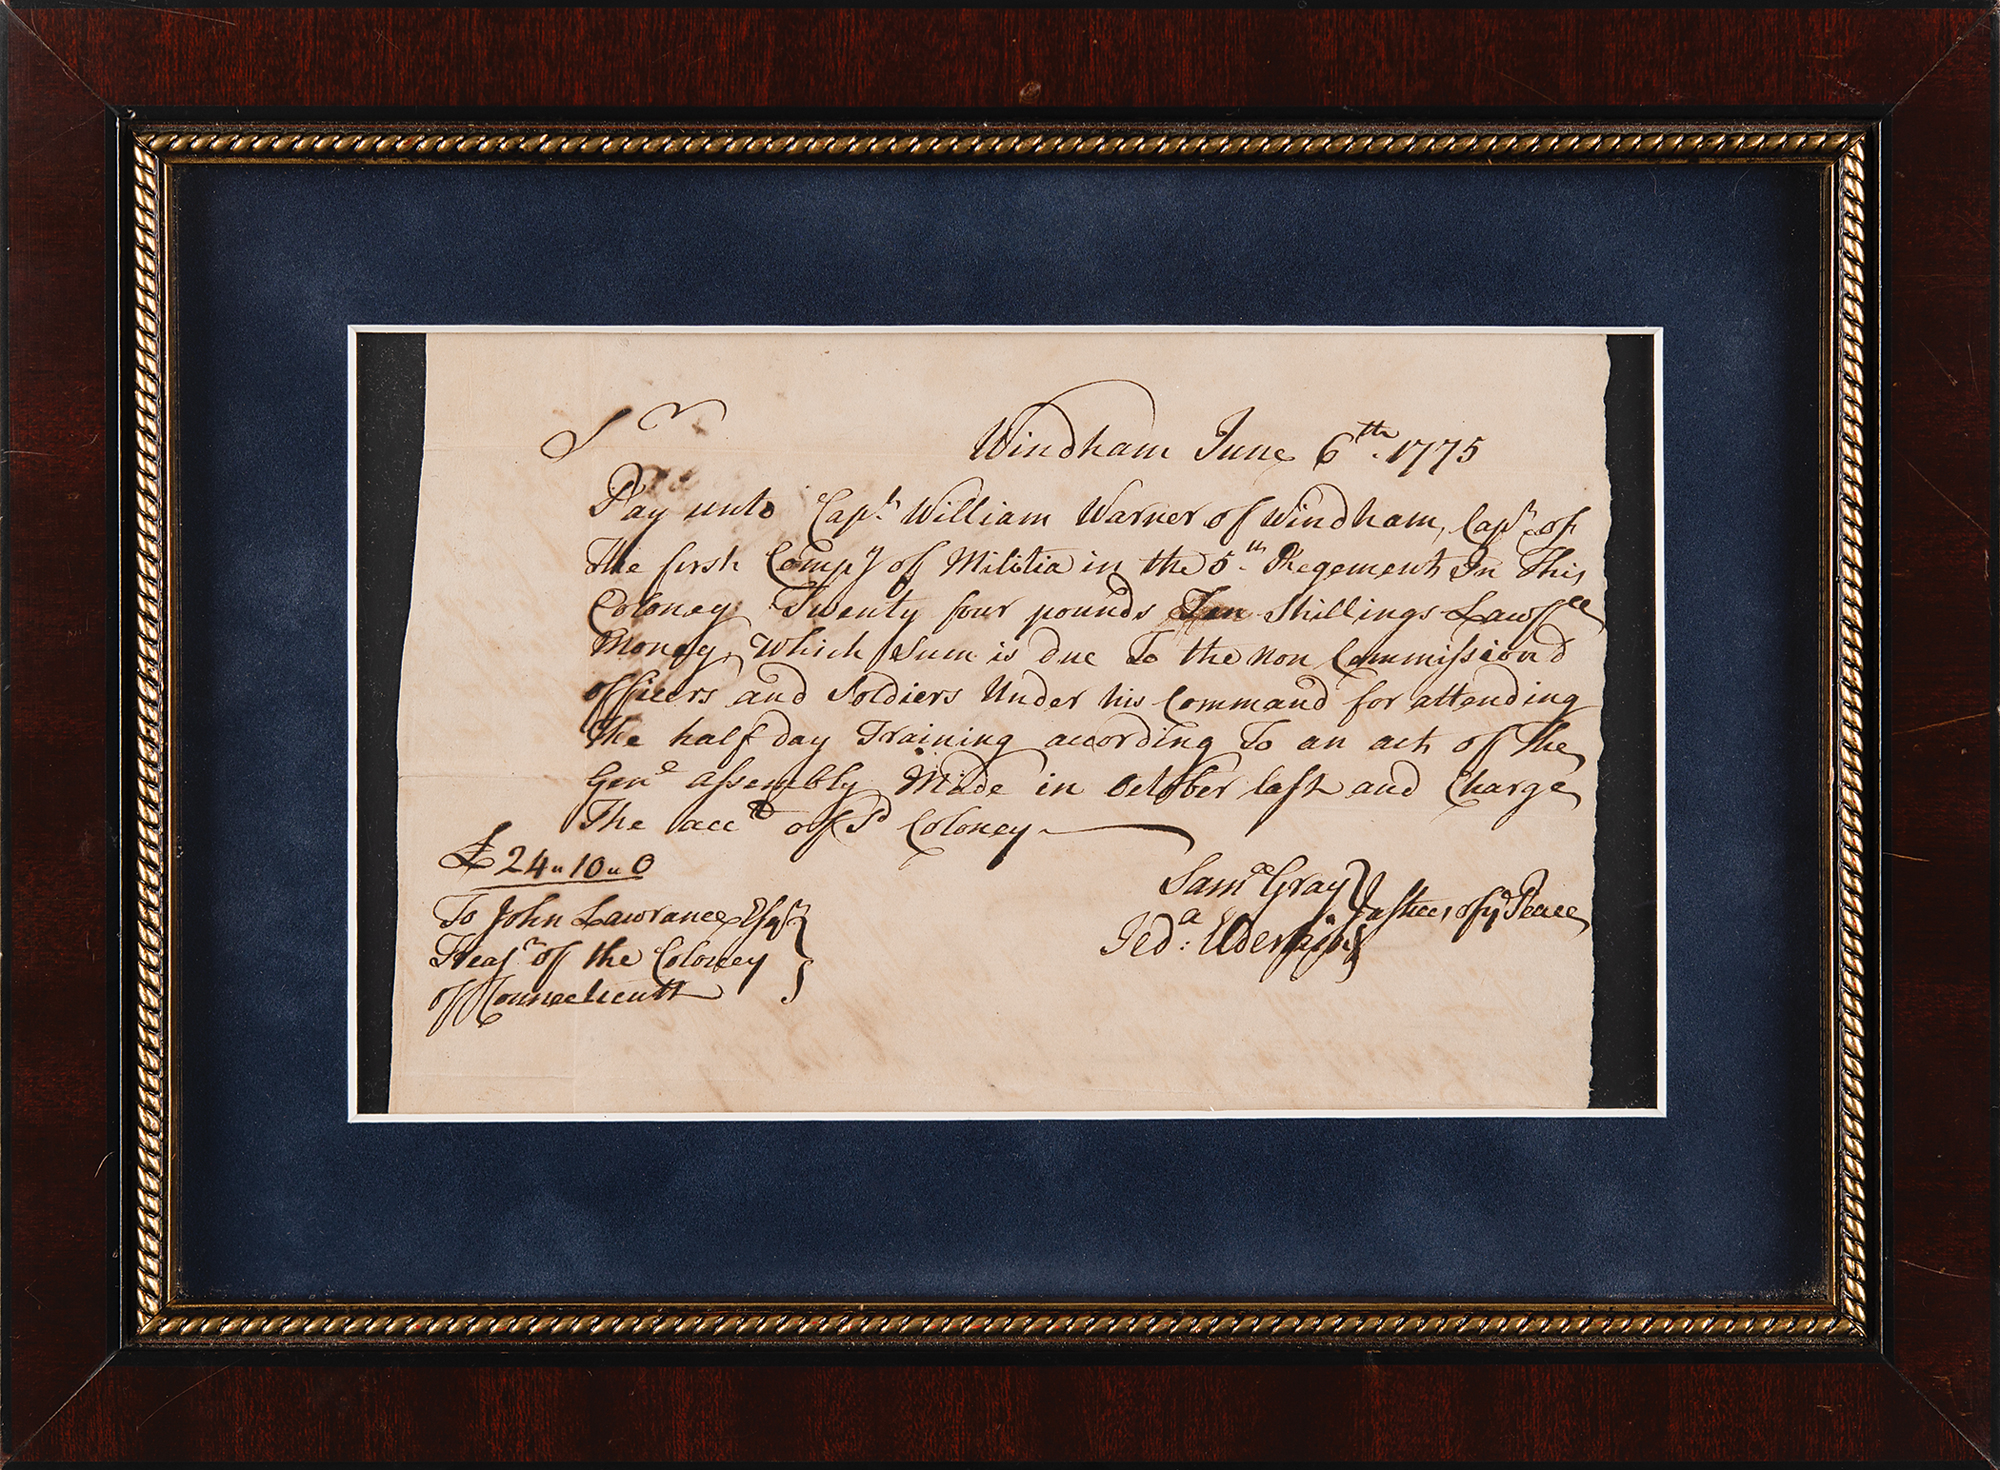 Sr
Windham June 6th. 1775
Pay unto Capt. William Warner of Windham, Capt of
The first Compy of Militia in the 5th Regement In This
Coloney Twenty four pounds Ten Shillings Lawfll
Money, Which Sum is due To the Non Commissiond
officers and Soldiers Under his Command for attending
The half day Training according To an act of The
Genll assembly Made in October last and Charge
The acctt of sd Coloney
£24"10"0
Saml Gray } Justices of ye Peace
Jeda: Elderkin
To John Lawrance Esqr
Treasr of the Coloney
of Connecticutt